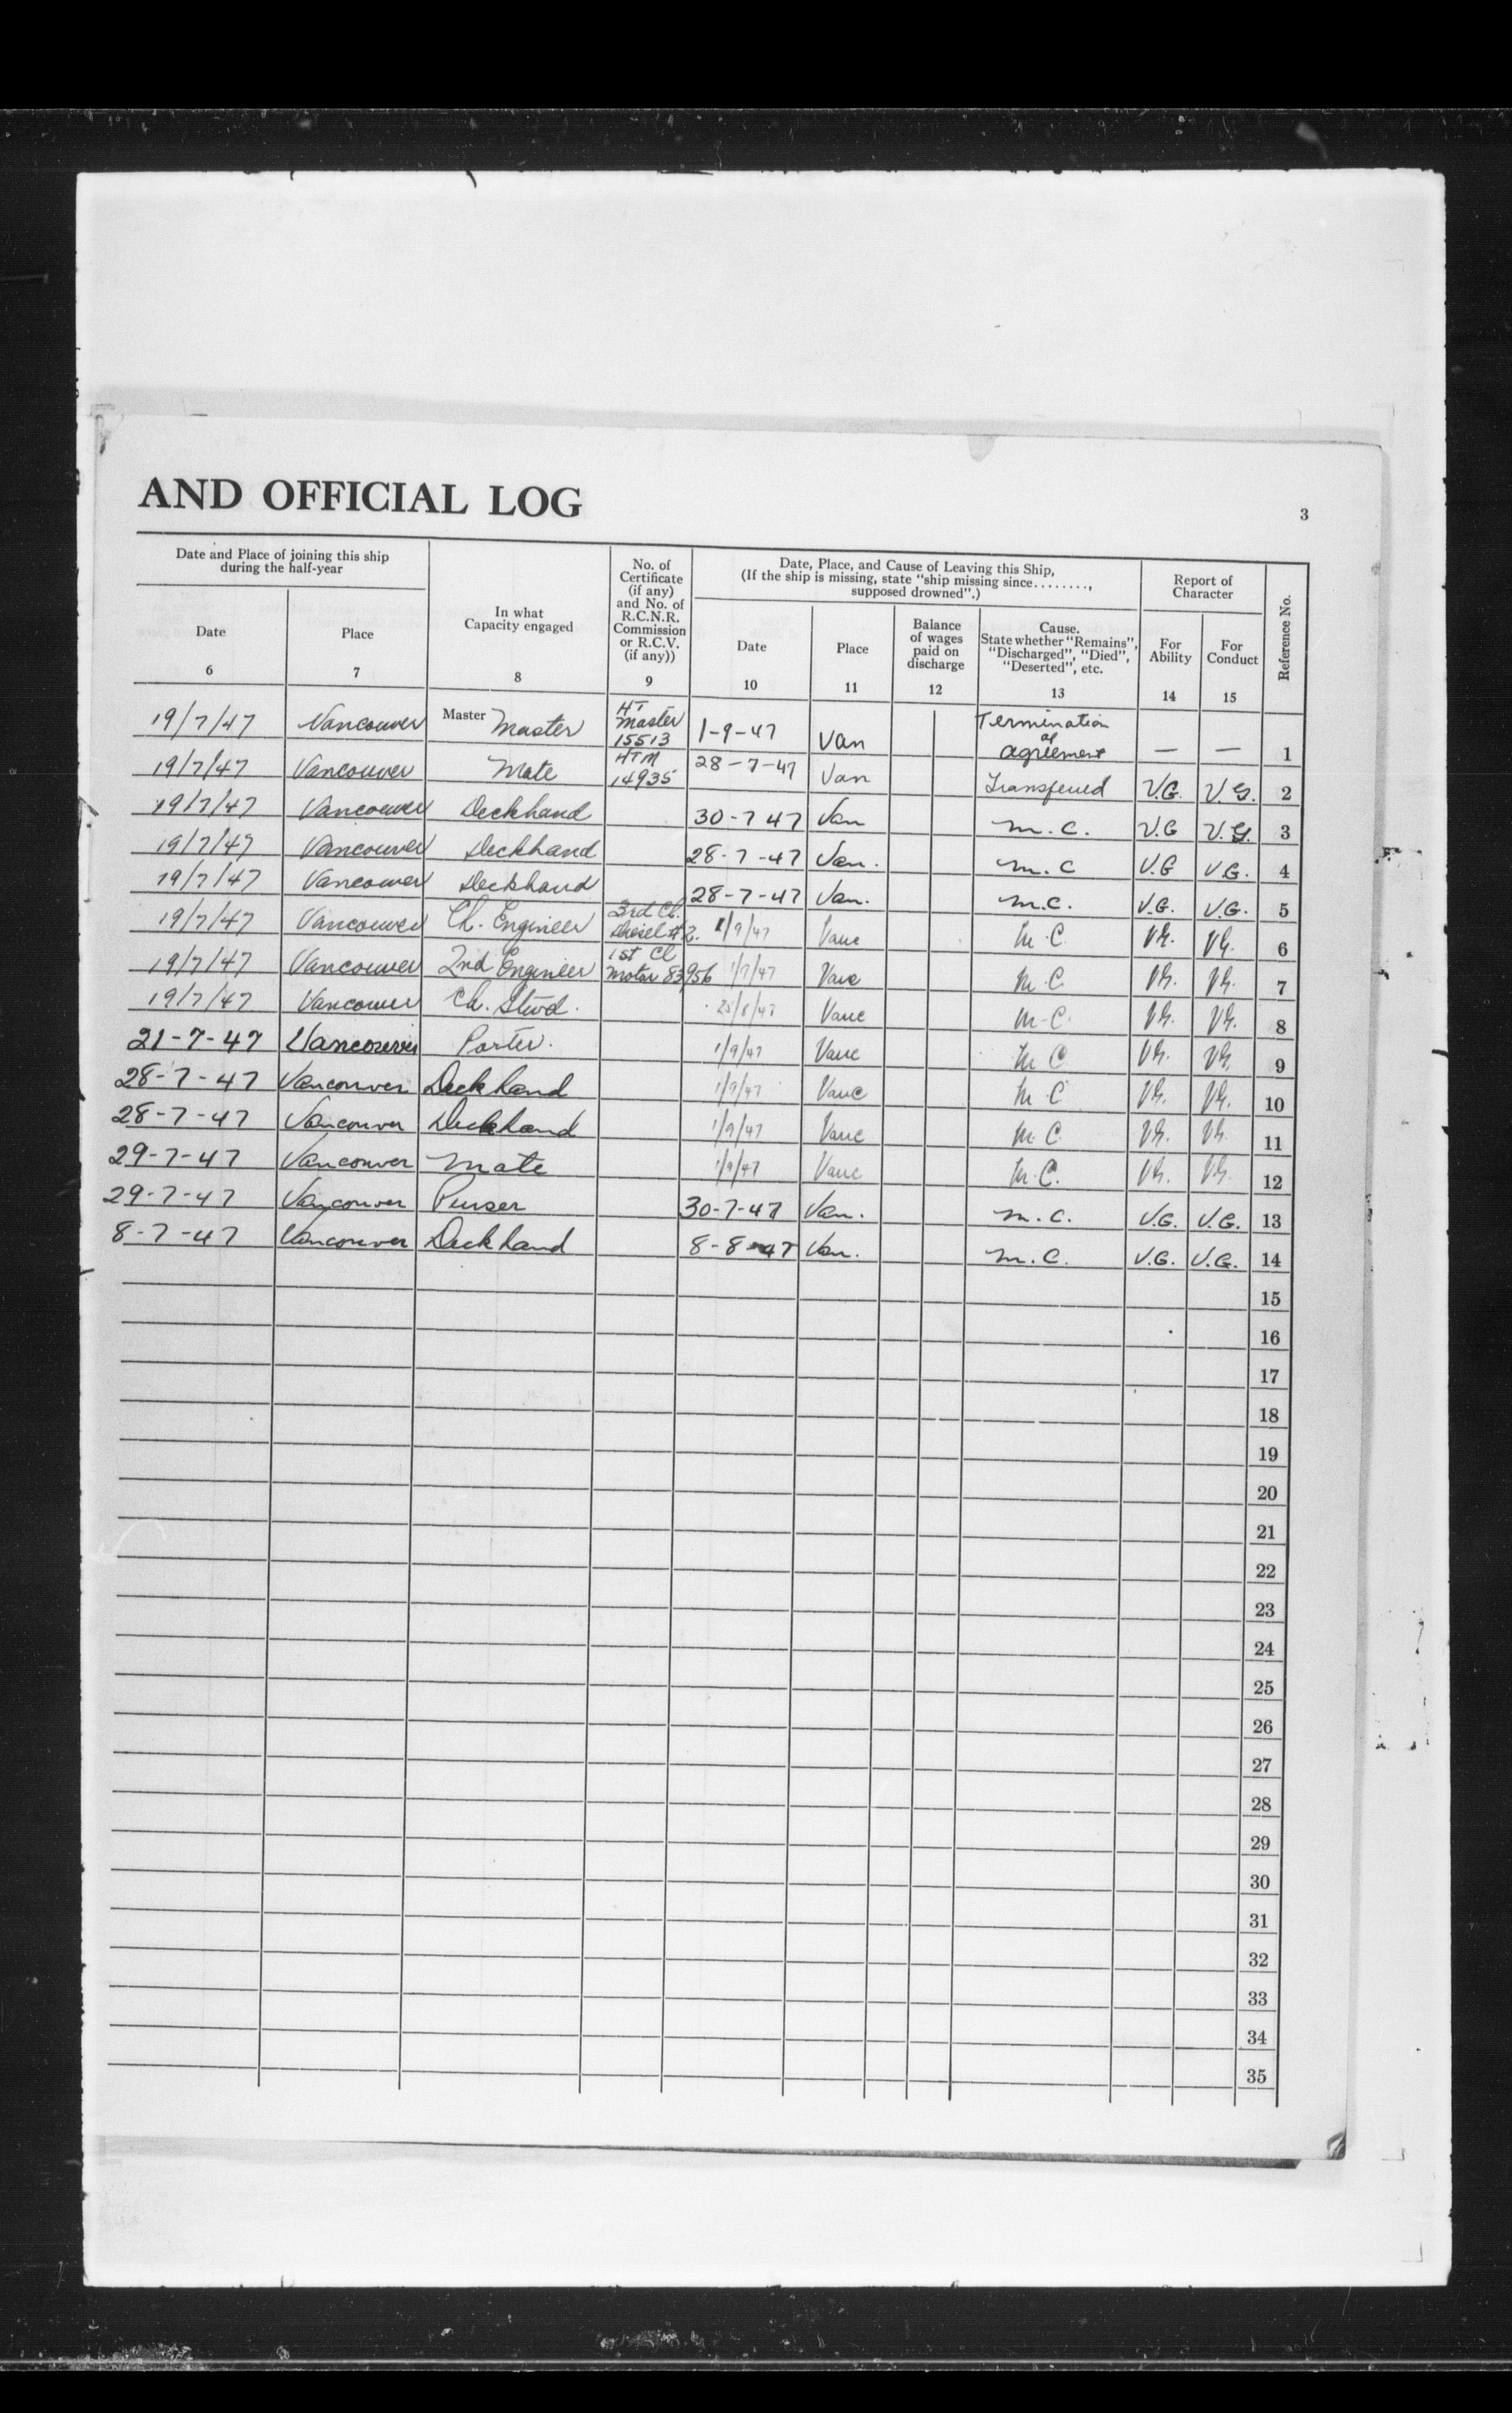 AND OFFICIAL LOG
3
Date and Place of joining this ship
during the half-year
In what
Capacity engaged
No. of
Certificate
(if any)
and No. of
R.C.N.R.
Commission
or R.C.V.
(if any))
Date, Place, and Cause of Leaving this Ship,
(If the ship is missing, state "ship missing since........,
supposed drowned".)
Report of
Character
Reference No.
Date
Place
Date
Place
Balance
of wages
paid on
discharge
Cause.
State whether "Remains",
"Discharged", "Died",
"Deserted", etc.
For
Ability
For
Conduct
6 7 8 9 10 11 12 13 14 15
19/7/47 Vancouver Master Master HT Master 15513 1-9-47 Van Termination of agreement — — 1
19/7/47 Vancouver Mate HTM 14935 28-7-47 Van Transferred V.G. V.G. 2
19/7/47 Vancouver Deckhand 30-7 47 Van M.C. V.G V.G. 3
19/7/47 Vancouver Deckhand 28-7-47 Van. M.C V.G V.G. 4
19/7/47 Vancouver Deckhand 28-7-47 Van. M.C. V.G. V.G. 5
19/7/47 Vancouver Ch. Engineer 3rd Cl. Diesel #2. 1/9/47 Vanc M.C VG. VG. 6
19/7/47 Vancouver 2nd Engineer 1st Cl Motor 83956 1/9/47 Vanc M.C VG. VG. 7
19/7/47 Vancouver Ch. Stwd. 25/8/47 Vanc M.C. VG. VG. 8
21-7-47 Vancouver Porter. 1/9/47 Vanc M C VG. VG. 9
28-7-47 Vancouver Deckhand 1/9/47 Vanc M.C VG. VG. 10
28-7-47 Vancouver Deckhand 1/9/47 Vanc M.C. VG. VG. 11
29-7-47 Vancouver Mate 1/9/47 Vanc M.C. VG. VG. 12
29-7-47 Vancouver Purser 30-7-47 Van. M.C. V.G. V.G. 13
8-7-47 Vancouver Deckhand 8-8-47 Van. M.C. V.G. V.G. 14
15
16
17
18
19
20
21
22
23
24
25
26
27
28
29
30
31
32
33
34
35